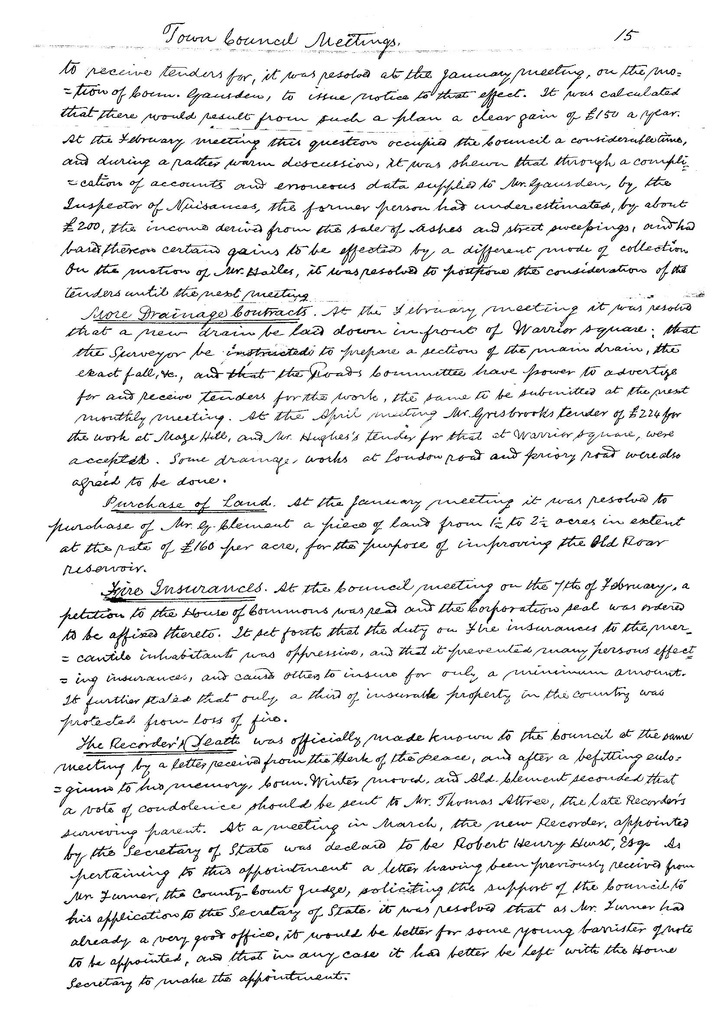 Town Council Meetings. 15
to receive tenders for, it was resolved at the January meeting, on the mo=
=tion of Coun. Gausden, to issue notice to that effect. It was calculated
that there would result from such a plan a clear gain of £150 a year.
At the February meeting this question occupied the Council a considerable time,
and during a rather warm discussion, it was shewn that through a compli=
=cation of accounts and erroneous data supplied to Mr. Gausden, by the
Inspector of Nuisances, the former person had under-estimated, by about
£200, the income derived from the sale of ashes and street sweepings, and had
based thereon certain gains to be effected by a different mode of collection
On the motion of Mr. Hailes, it was resolved to postpone the consideration of the
tenders until the next meeting
More Drainage Contracts. At the February meeting it was resolved
that a new drain be laid down in front of Warrior square; that
the Surveyor be instructed to prepare a section of the main drain, the
exact fall, &c., and that the Roads Committee have power to advertize
for and receive tenders for the work, the same to be submitted at the next
monthly meeting. At the April meeting Mr. Grisbrook's tender of £224 for
the work at Maze Hill, and Mr. Hughes's tender for that at Warrior square, were
accepted. Some drainage works at London road and priory road were also
agreed to be done.
Purchase of Land. At the January meeting it was resolved to
purchase of Mr. G. Clement a piece of land from 1½ to 2½ acres in extent
at the rate of £160 per acre, for the purpose of improving the Old Roar
reservoir.
Fire Insurances. At the Council meeting on the 7th of February, a
petition to the House of Commons was read and the Corporation seal was ordered
to be affixed thereto. It set forth that the duty on Fire insurances to the mer=
=cantile inhabitant was oppressive, and that it prevented many persons effect=
=ing insurances, and caus others to insure for only a minimum amount.
It further stated that only a third of insurable property in the country was
protected from loss of fire.
The Recorder's Death was officially made known to the Council at the same
meeting by a letter received from the Clerk of the peace, and after a befitting eulo=
=gium to his memory, Coun. Winter moved, and Ald. Clement seconded that
a vote of condolence should be sent to Mr. Thomas Attree, the late Recorder's
surviving parent. At a meeting in March, the new Recorder, appointed
by the Secretary of State was declared to be Robert Henry Hurst, Esq. As
pertaining to this appointment a letter having been previously received from
Mr. Furner, the County-Court Judge, soliciting the support of the Council to
his application to the Secretary of State, it was resolved that as Mr. Furner had
already a very good office, it would be better for some young barrister of note
to be appointed, and that in any case it had better be left with the Home
Secretary to make the appointment.